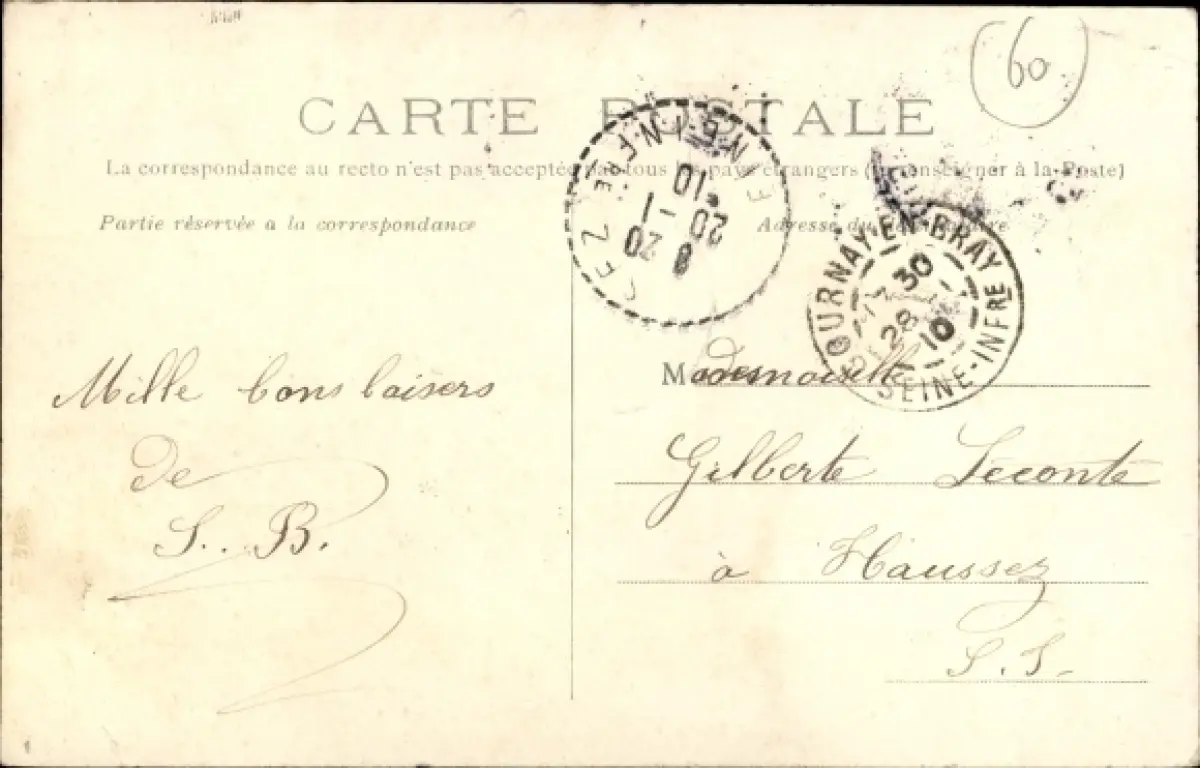 60
CARTE POSTALE
La correspondance au recto n'est pas acceptée par tous les pays étrangers (se renseigner à la Poste)
Partie réservée a la correspondance
Adresse du
GOURNAY-EN-BRAY
30
28
10
SEINE-INFRE
10
20 - 1
8 20
Mille bons baisers
de
S. B.
Mademoiselle
Gilberte Leconte
à Haussez
S. I.
1